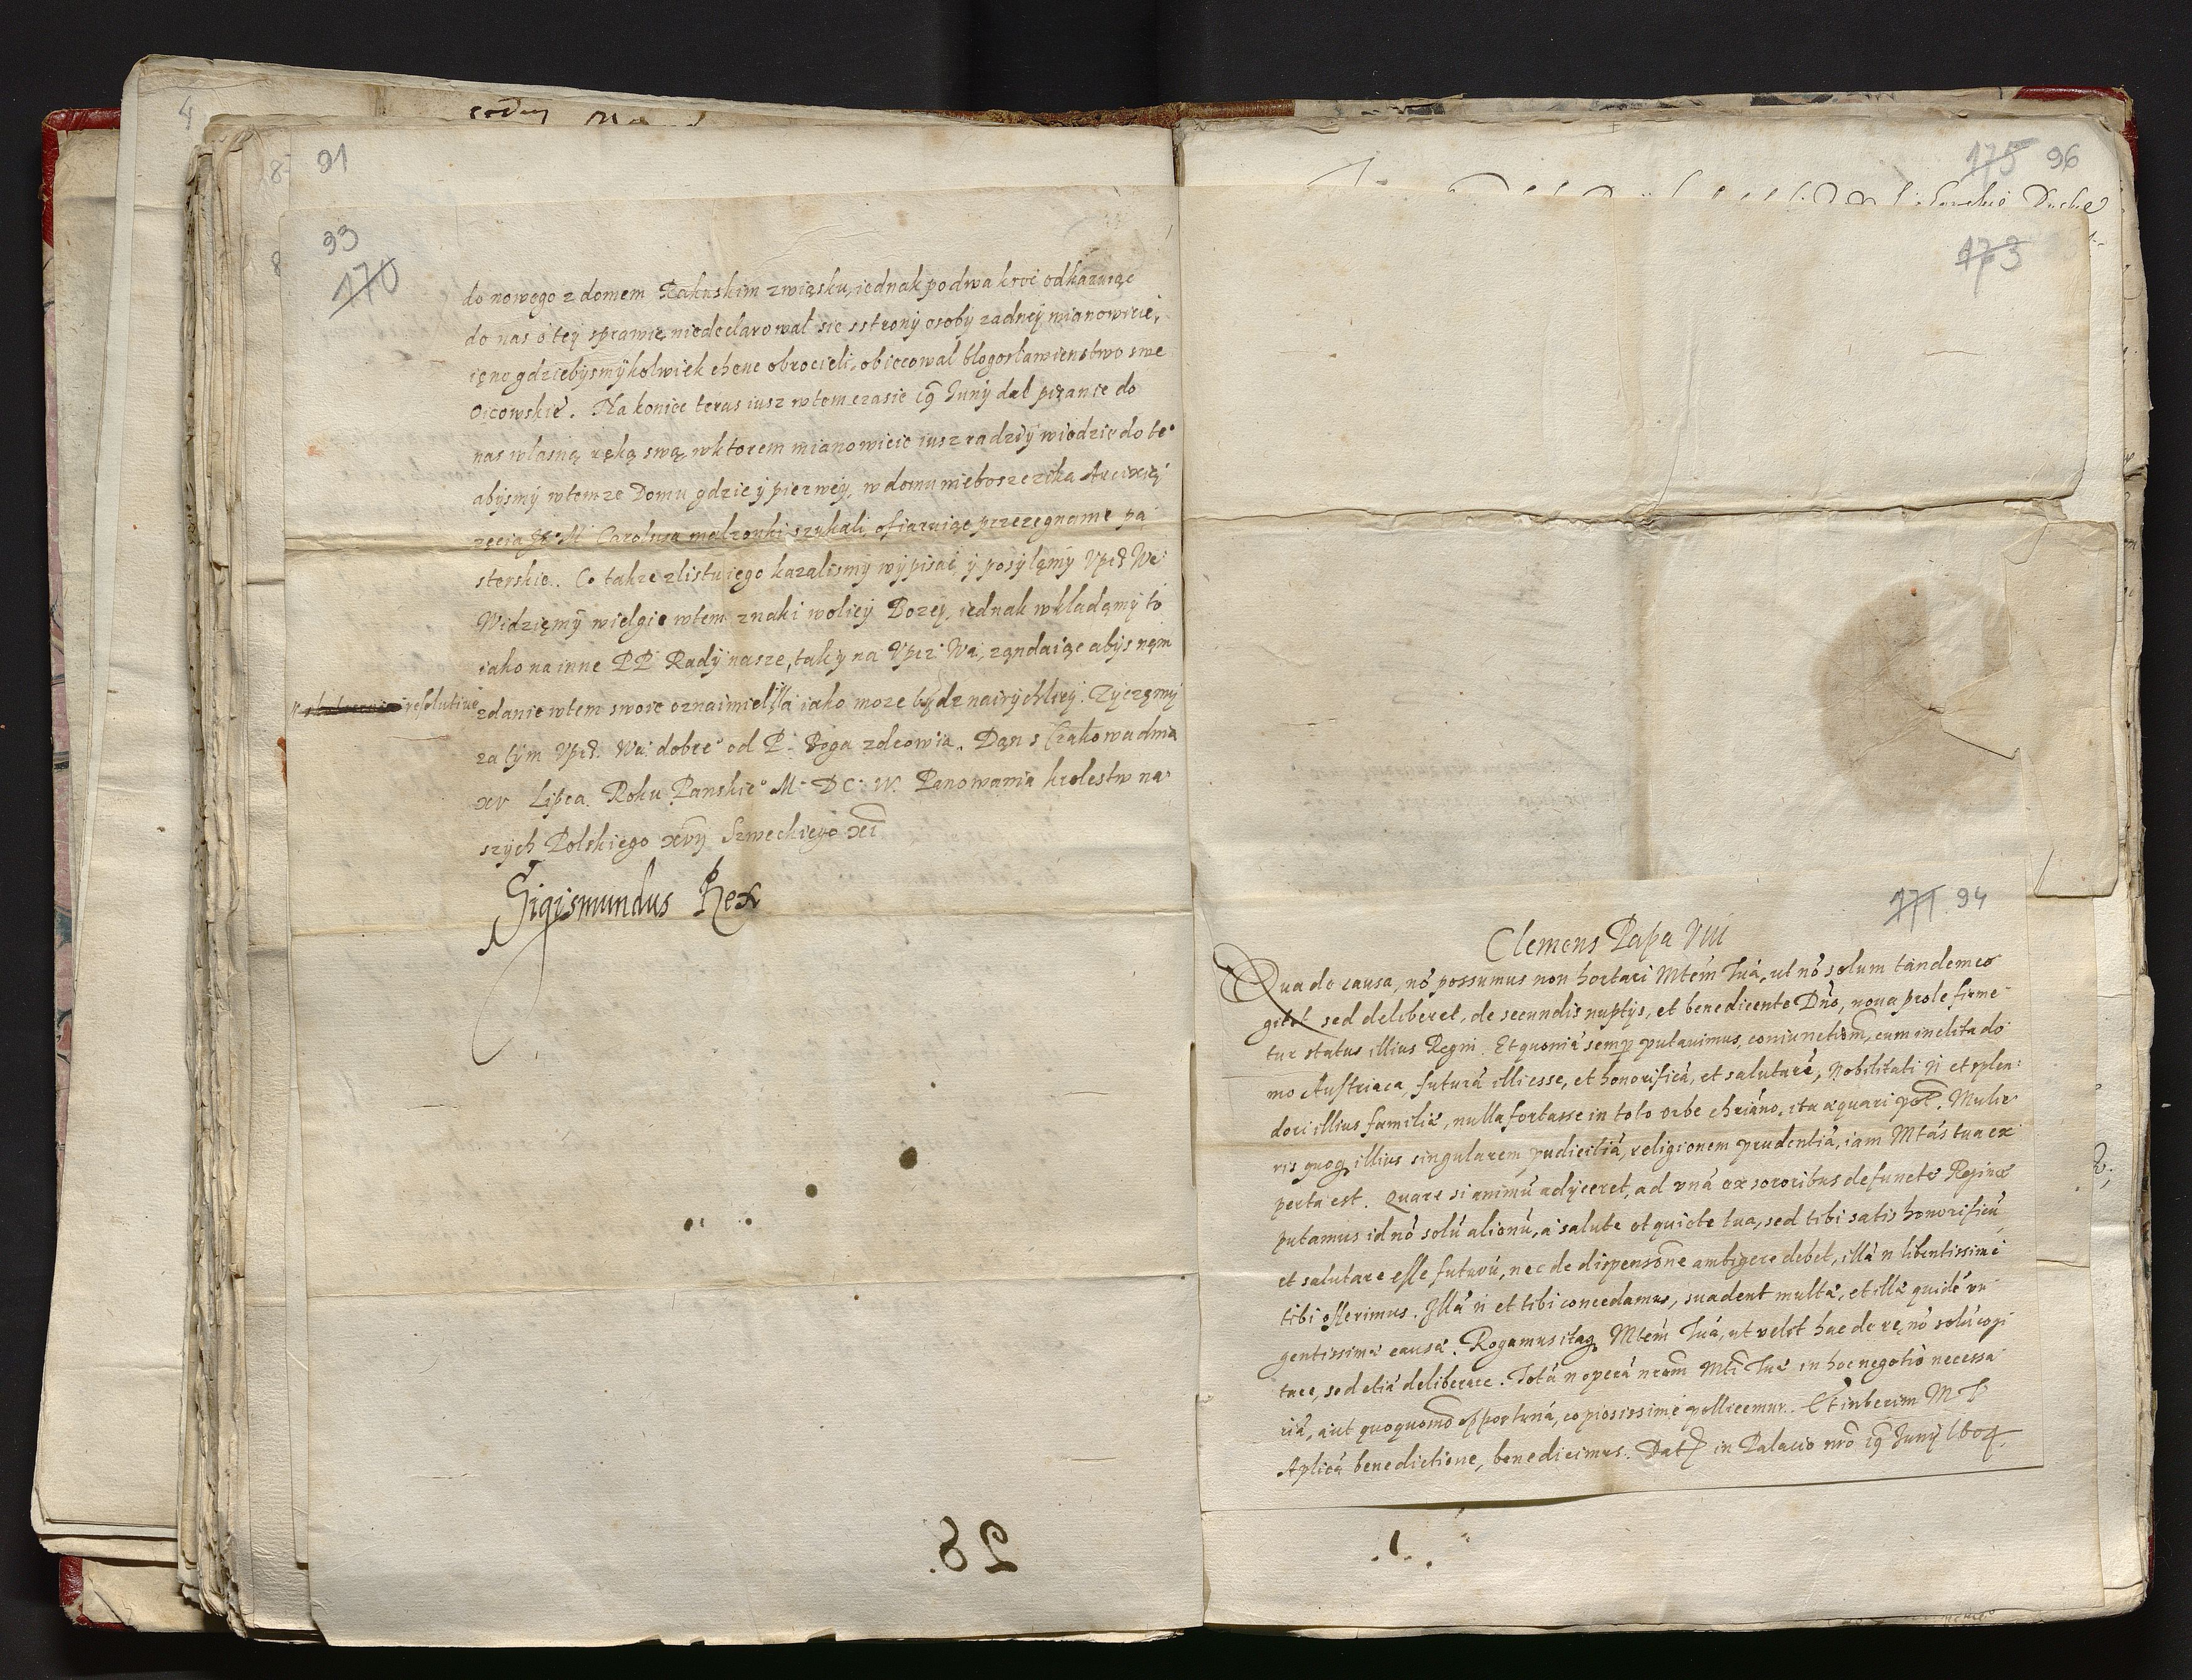 4
91
93
170
do nowego z domem Rakuskim zwiąsku, iednak po dwa kroć odkazuiąc
do nas o teÿ sprawie, niedeclarował sie s stronÿ osobÿ zadneÿ mianowicie,
gdziebÿsmÿkolwiek chenc obrocieli, obiecował błogosławienstwo swe
Oicowskie. Na koniec teras iusz w tem czasie 19 Junÿ dał pisanie do
nas własną ręką swą, w ktorem mianowicie iusz radzi ÿ wiedzie do te°
abÿsmÿ w temze Domu gdzie ÿ pierweÿ, w domu nieboszczika Arcixią
zęcia Je° M Carolusa malzonki szukali, ofiaruiąc przezegnanie pa
sterskie. Co takze z listu iego kazalismÿ wÿpisać ÿ posÿłamÿ Uprz We
Widzięmÿ wielgie w tem znaki woliеÿ Bozeÿ, iednak wkładamÿ to
iako na inne PP Radÿ nasze, tak ÿ na Uprz Wę, ządaiąc abÿs nąm
resolutiue
zdanie w tem swoie oznaimieł, iako moze bÿdz nairÿchlieÿ. Zÿczÿmÿ
za tÿm Uprz. We dobre° od P. Boga zdrowia. Dąn s Crakowa dnia
xv Lipca Roku Panskie° M DC IV. Panowania krolestw na
szÿch Polskiego xvij Szweckiego xi
Sigismundus Rex
28.
175 96
173
171 94
Clemens Papa VIII
Qua de causa, nō possumus non hortari Mtem Tuā, ut nō solum tandem co
gitet sed deliberet, de secundis nuptÿs, et benedicente Dno, noua prole firme
tur status illius Regni. Et quoniā semp putauimus, coniunctiōm, cum inclita do
mo Austriaca, futurā illi esse, et honorificā, et salutarē, Nobilitati n et splen
dori illius familiæ, nulla fortasse in toto orbe chriano, ita æquari pōt. Mulie
ris quoq illius singularem pudicitiā, religionem prudentiā, iam Mtas tua ex
perta est. Quare si animū adÿceret, ad vnā ex sororibus defunctæ Reginæ
putamus id nō solū alienū, a salute et quiete tua, sed tibi satis honorificū
et salutare esse futurū, nec de dispensōne ambigere debet, illā n libentissime
tibi offerimus. Illā n et tibi concedamus, suadent multæ, et illæ quidē vr
gentissimæ causæ. Rogamus itaq Mtem Tuā, ut velit hac de re, nō solū cogi
tare, sed etiā deliberare. Totā n operā nram Mti Tuæ in hoc negotio necessa
riā, aut quoquomō opportunā, copiosissime pollicemur. Et interim M T
Aplicā benedictione, benedicimus. Dat in Palacio nrō 19 Junÿ 1604